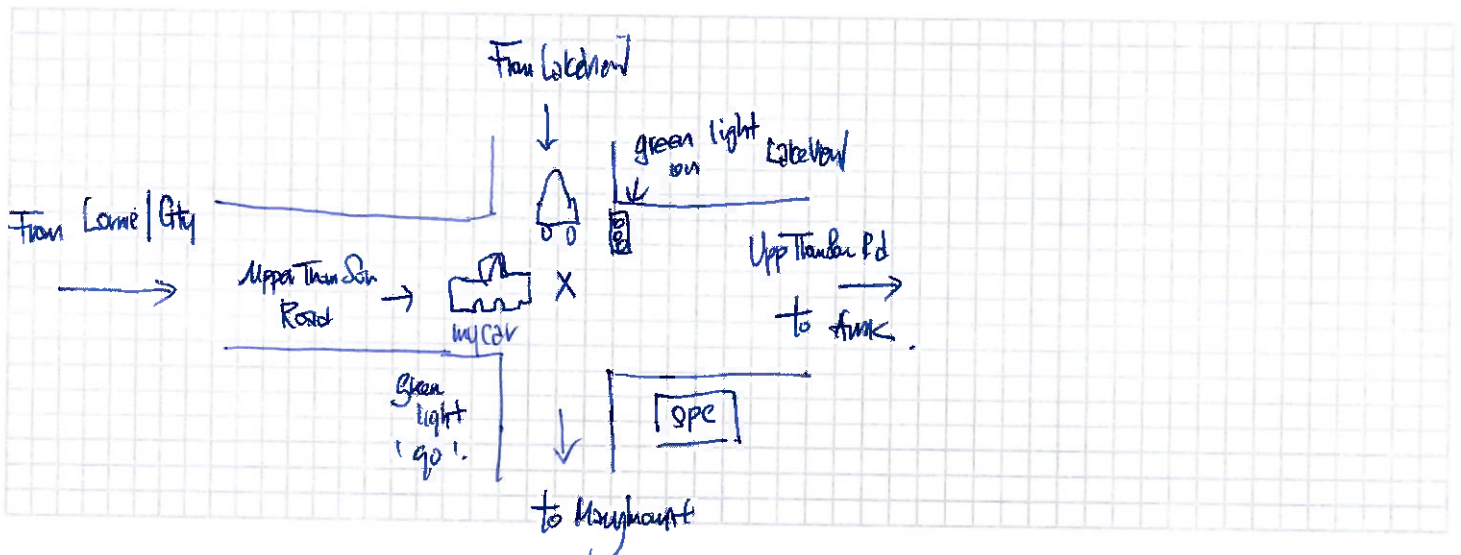 From Lakeview
green light
on
Lakeview
From Lornie/City
Upper Thomson
Road
my car
X
Upp Thomson Rd
to AMK.
green
light
'go'.
SPC
to Marymount